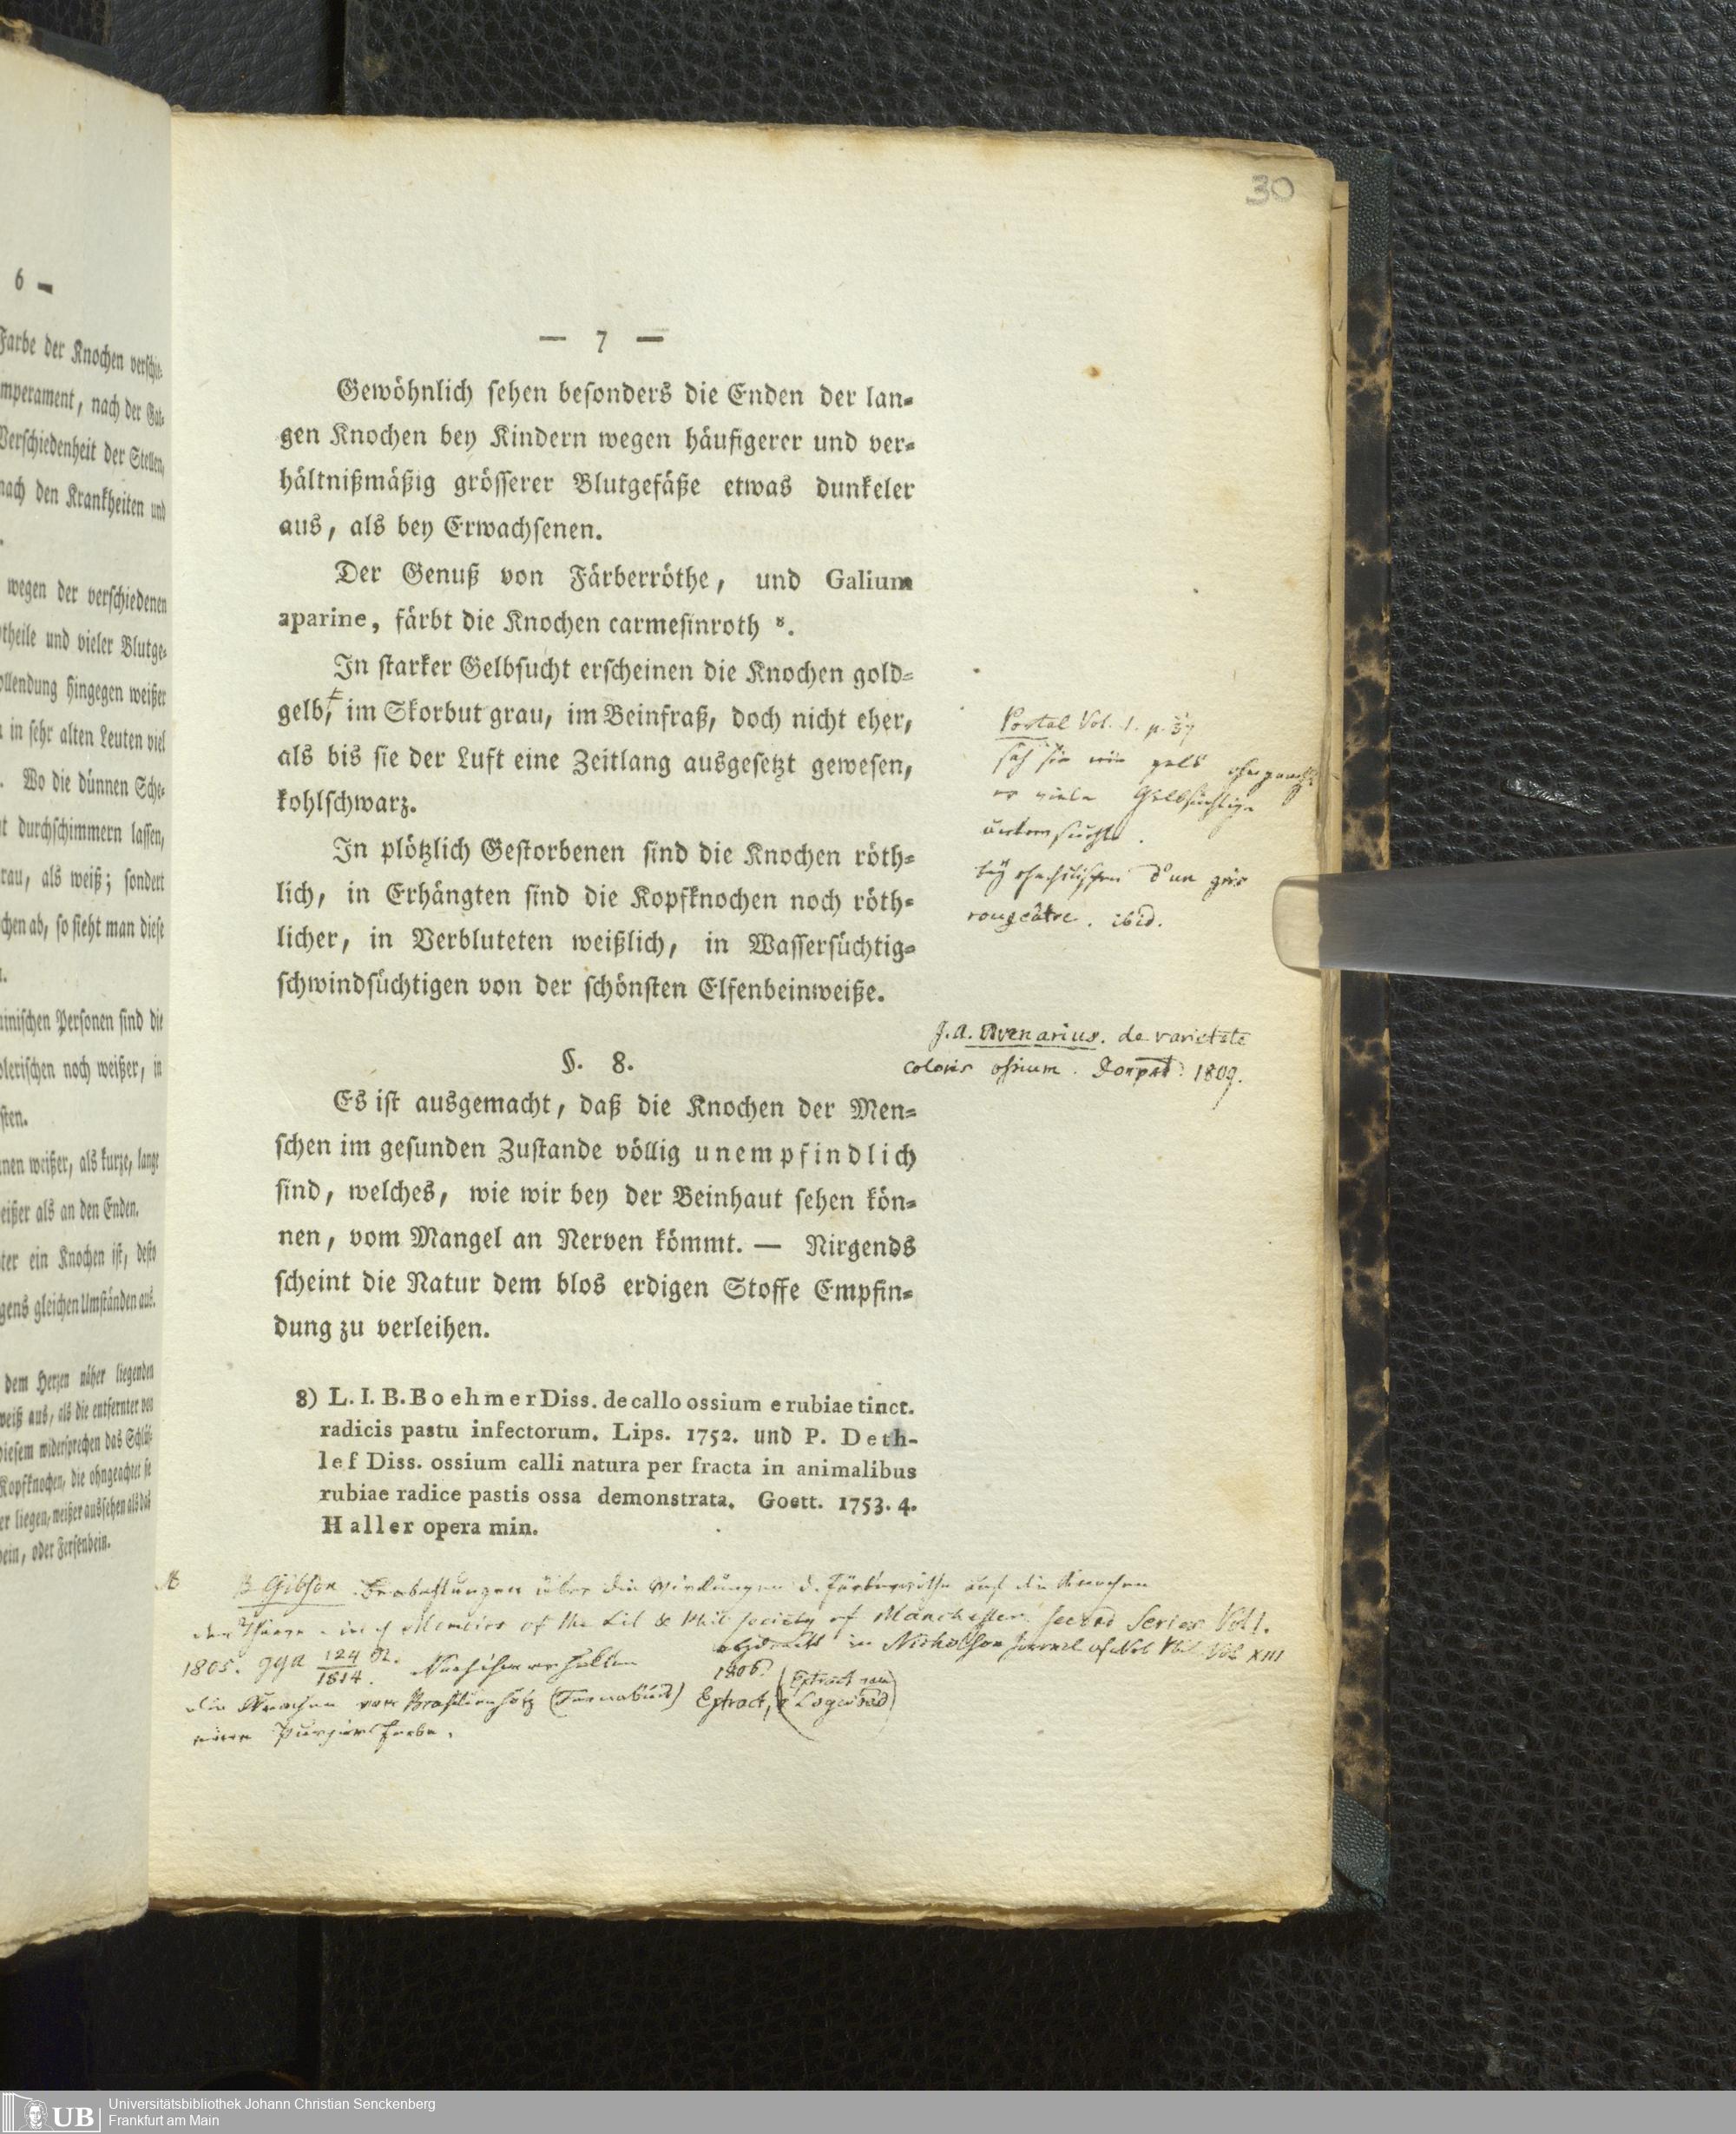 6 —
Farbe der Knochen verschie-
mperament, nach der Gat-
Verschiedenheit der Stellen,
nach den Krankheiten und
wegen der verschiedenen
theile und vieler Blutge-
ollendung hingegen weißer
in sehr alten Leuten viel
. Wo die dünnen Sche-
t durchschimmern lassen,
rau, als weiß; sondert
chen ab, so sieht man diese
inischen Personen sind die
olerischen noch weißer, in
sten.
nen weißer, als kurze, lange
eißer als an den Enden.
ter ein Knochen ist, desto
gens gleichen Umständen aus.
dem Herzen näher liegenden
weiß aus, als die entfernter von
diesem widersprechen das Schlüs-
Kopfknochen, die ohngeachtet sie
er liegen, weißer aussehen als das
bein, oder Fersenbein.
30
— 7 —
Gewöhnlich sehen besonders die Enden der lan-
gen Knochen bey Kindern wegen häufigerer und ver-
hältnißmäßig grösserer Blutgefäße etwas dunkeler
aus, als bey Erwachsenen.
Der Genuß von Färberröthe, und Galium
aparine, färbt die Knochen carmesinroth ⁸.
In starker Gelbsucht erscheinen die Knochen gold-
gelb, im Skorbut grau, im Beinfraß, doch nicht eher,
als bis sie der Luft eine Zeitlang ausgesetzt gewesen,
kohlschwarz.
In plötzlich Gestorbenen sind die Knochen röth-
lich, in Erhängten sind die Kopfknochen noch röth-
licher, in Verbluteten weißlich, in Wassersüchtig-
schwindsüchtigen von der schönsten Elfenbeinweiße.
Portal Vol. 1. p. 37
sah sie nie gelb
er viele Gelbsüchtige
untersuchte.
bey rhachitischen d'un gris
rougeâtre. ibid.
J. A. Avenarius. de varietate
coloris ossium. Dorpat. 1809.
§. 8.
Es ist ausgemacht, daß die Knochen der Men-
schen im gesunden Zustande völlig unempfindlich
sind, welches, wie wir bey der Beinhaut sehen kön-
nen, vom Mangel an Nerven kömmt. — Nirgends
scheint die Natur dem blos erdigen Stoffe Empfin-
dung zu verleihen.
8) L. I. B. Boehmer Diss. de callo ossium e rubiae tinct.
radicis pastu infectorum. Lips. 1752. und P. Deth-
lef Diss. ossium calli natura per fracta in animalibus
rubiae radice pastis ossa demonstrata. Goett. 1753. 4.
Haller opera min.
B Gibson Beobachtungen über die Wirkungen d. Färberröthe auf die Knochen
der Thiere - in Memoirs of the Lit & Phil Society of Manchester. Second Series Vol 1.
1805. gga 124 St. 1814. abgedruckt in Nicholson Journal of Nat Phil Vol XIII
1806.
die Knochen von Brasilienholz (Fernabuck) Extract, (Extract von
Logwood)
eine Purpurfarbe.
UB
Universitätsbibliothek Johann Christian Senckenberg
Frankfurt am Main